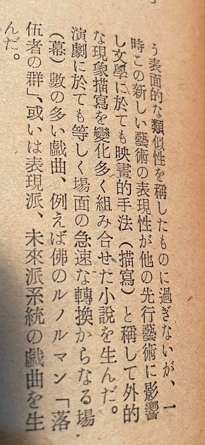 う表面的な類似性を稱したものに過ぎないが、一
時この新しい藝術の表現性が他の先行藝術に影響
し文學に於ても映畫的手法（描寫）と稱して外的
な現象描寫を變化多く組み合せた小說を生んだ。
演劇に於ても等しく場面の急速な轉換からなる場
（幕）數の多い戲曲、例えば佛のルノルマン「落
伍者の群」、或いは表現派、未來派系統の戲曲を生
んだ。